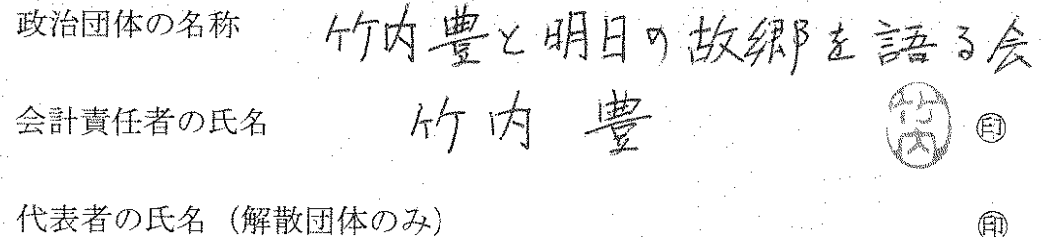 政治団体の名称 竹内豊と明日の故郷を語る会
会計責任者の氏名 竹内 豊 竹内 ㊞
代表者の氏名(解散団体のみ) ㊞